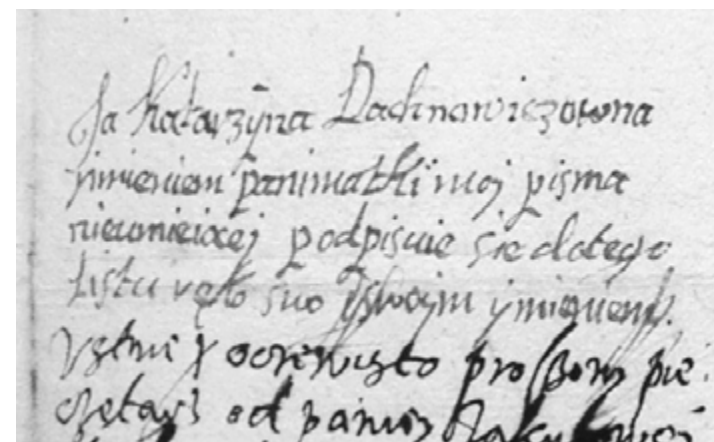 Ja Katarzÿna Dachnowiczowna
ÿmieniem panimatki moj pisma
nieumieiącej podpisuie się do tego
Listu ręko swo ÿ swoim ÿmieniem.
Vstnie ÿ oczewisto proszony pie
czętarz od paniey